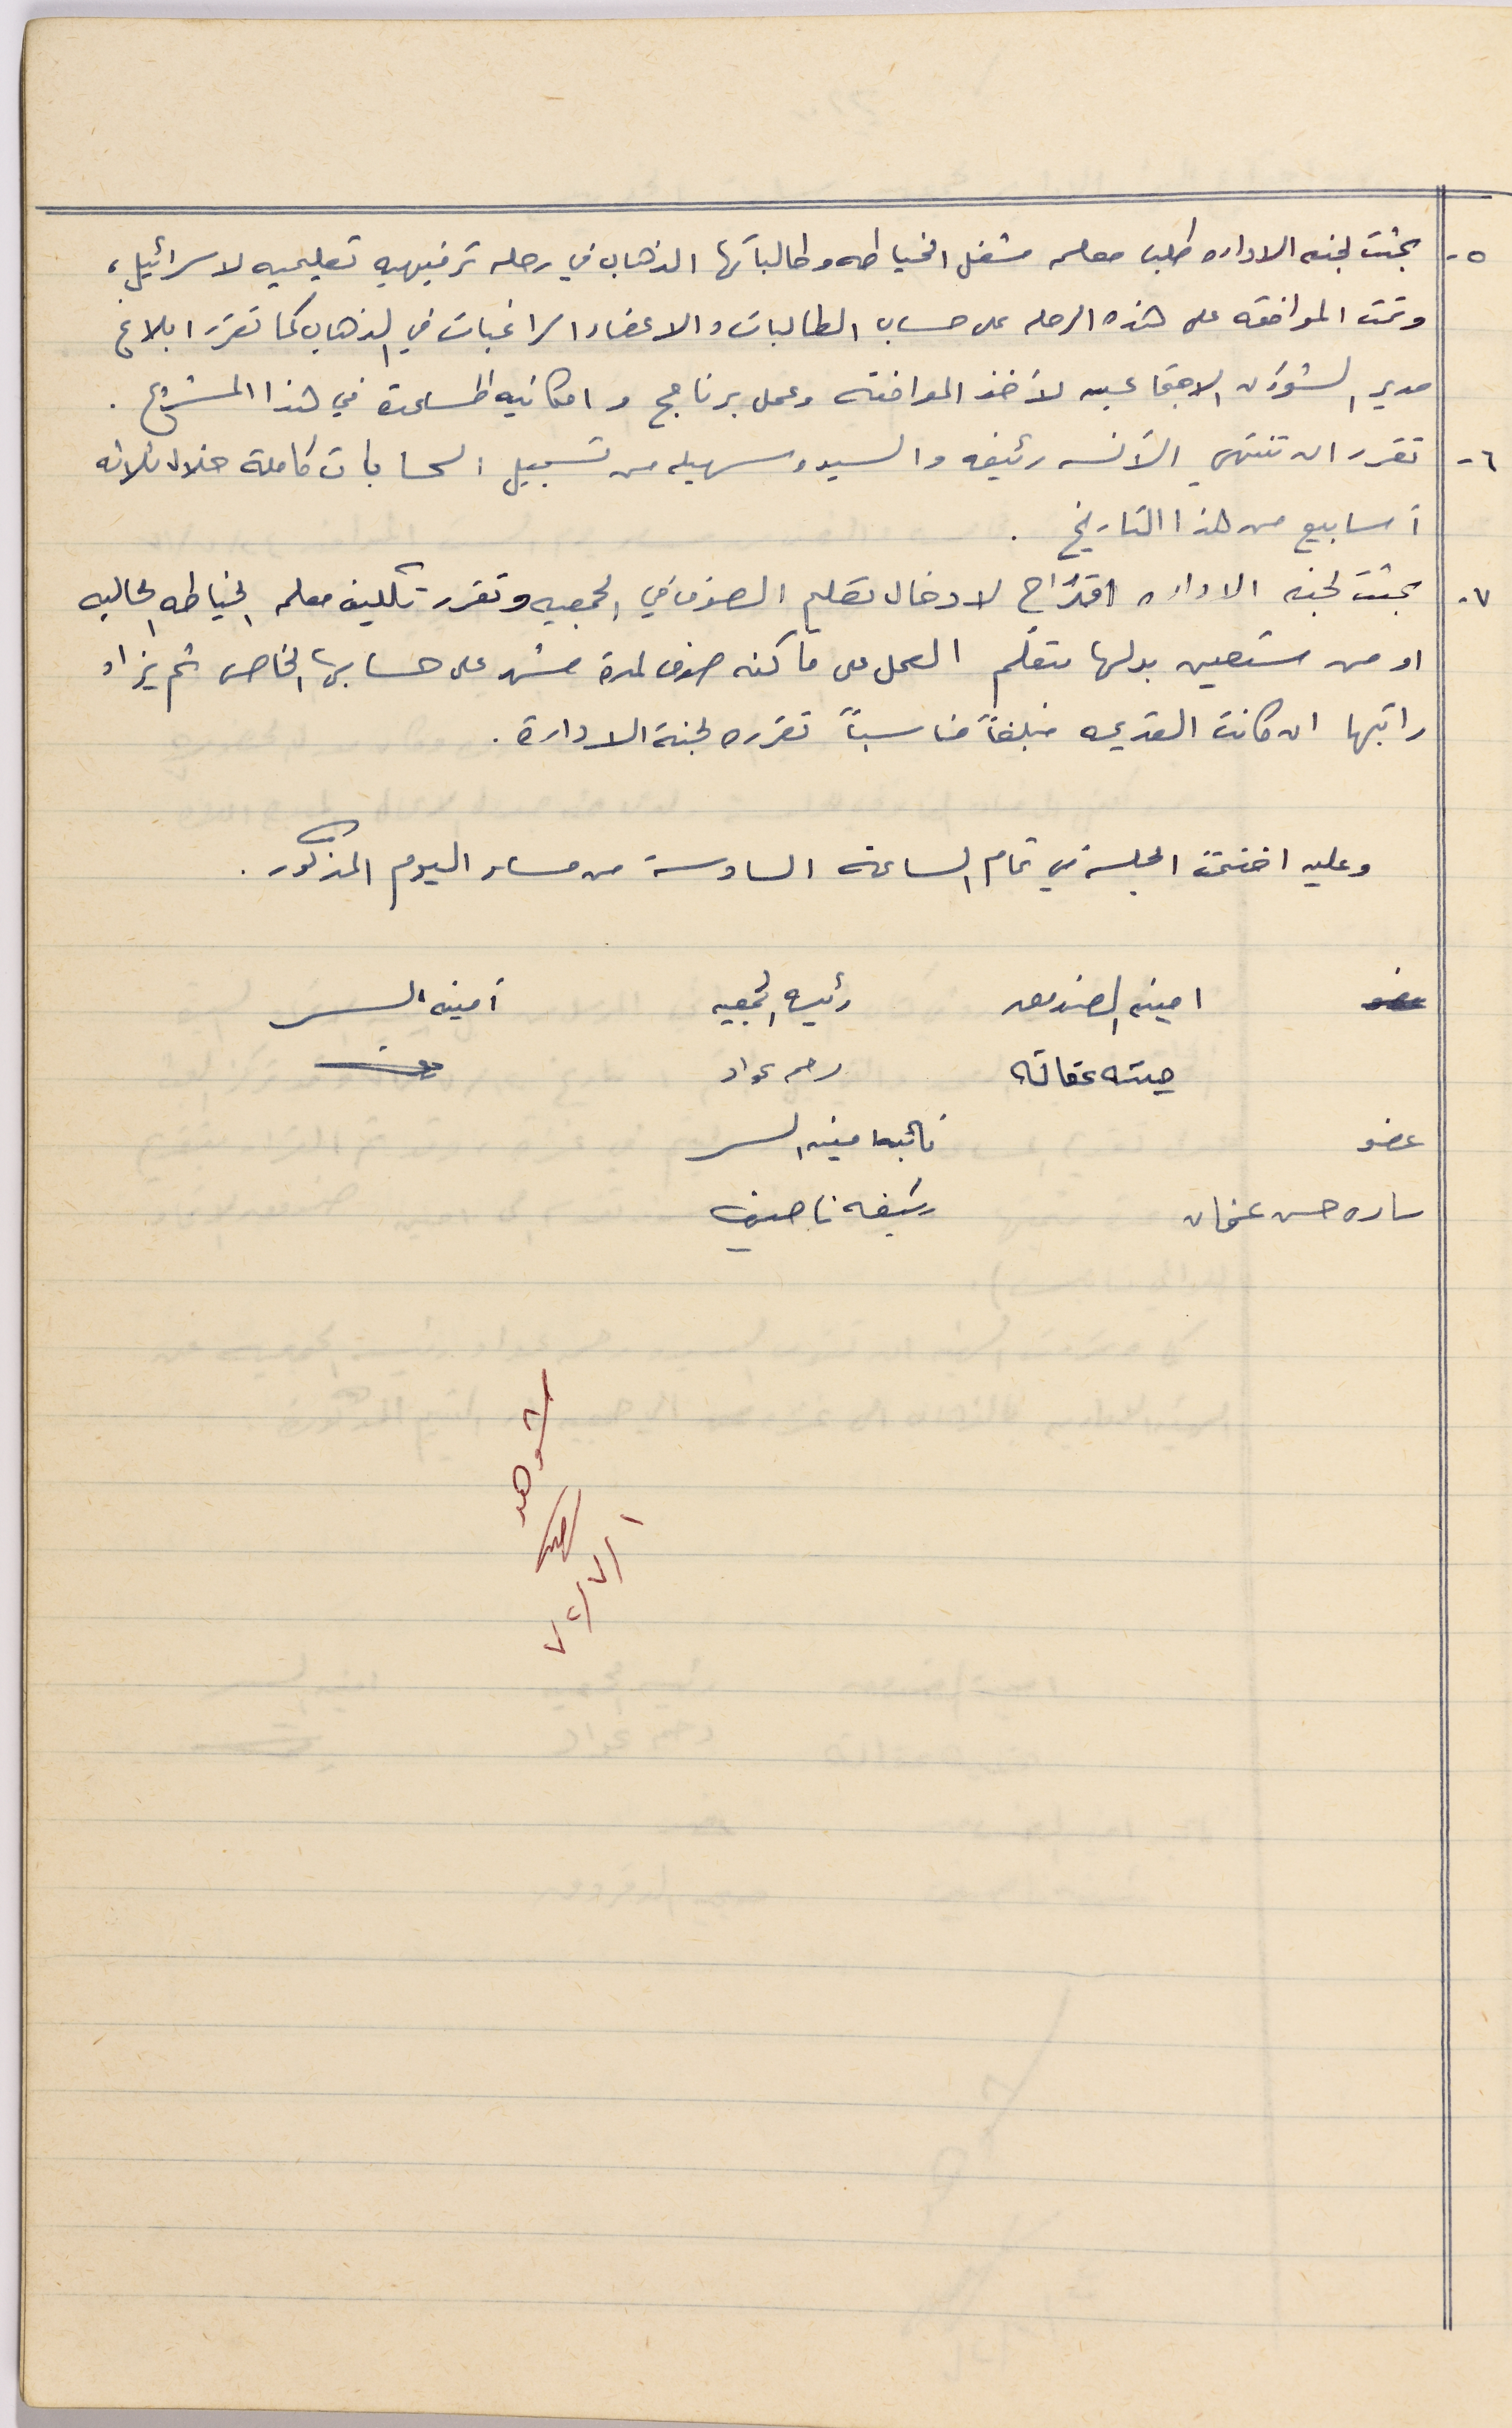 ٥- بحثت لجنه الاداره طلب معلمه مشغل الخياطه وطالباتها الذهاب في رحله ترفيهيه تعليميه لاسرائيل ،
وتمت الموافقه على هذه الرحله على حساب الطالبات والاعضاء الراغبات في الذهاب كما تقرر ابلاغ
مدير الشؤون الاجتماعيه لأخذ الموافقه وعمل برنامج و امكانيه المساعدة في هذا المشروع .
٦- تقرر ان تنتهي الآنسه رئيفه والسيده سهيله من تسجيل الحسابات كاملة خلال ثلاثه
أسابيع من هذا التاريخ .
٧- بحثت لجنه الاداره اقتراح لادخال تعليم الصوف في الجمعيه وتقرر تكليف معلمه الخياطه الحاليه
او من ستعين بدلها بتعلم العمل على ماكنه صوف لمدة شهر على حسابها الخاص ثم يزاد
راتبها ان كانت القديمه مبلغاً مناسباً تقرره لجنة الادارة .
وعليه اختتمت الجلسة في تمام الساعة السادسة من مساء اليوم المذكور .
عضو امينه الصندوق رئيسه الجمعيه أمينه السر
رحمه عواد
عضو نائبه امينه السر
ساره حسن عثمان رئيفه ناصيف
شوهد
٧٢/٧/١